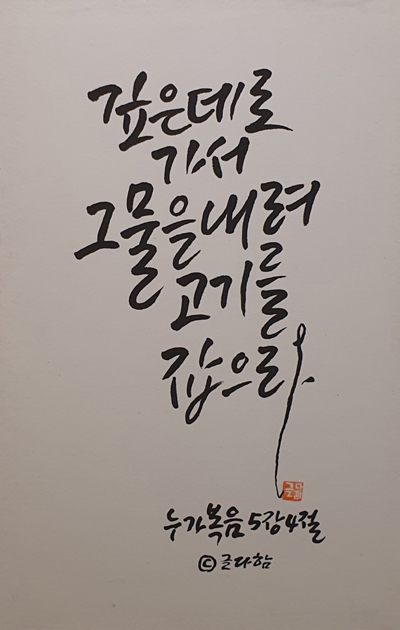 깊은데로
가서
그물을내려
고기를
잡으라
누가복음 5장 4절
© 글다함